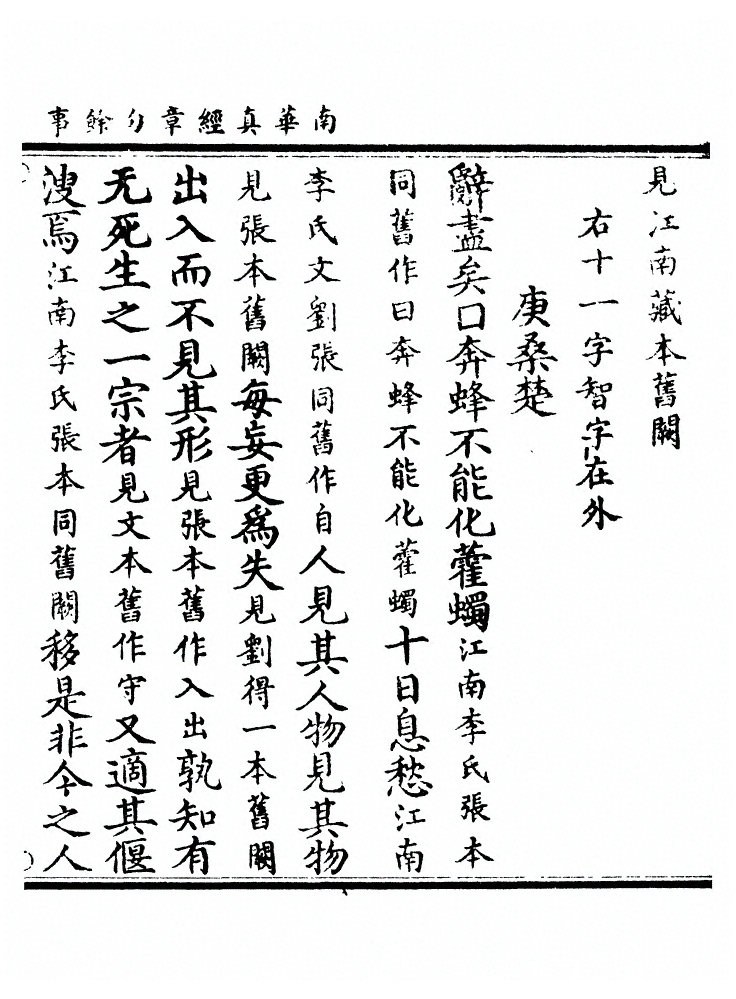 南華真經章句餘事
見江南藏本舊闕
右十一字智字在外
庚桑楚
辭盡矣口奔蜂不能化藿蠋江南李氏張本
同舊作曰奔蜂不能化藿蠋十日息愁江南
李氏文劉張同舊作自人見其人物見其物
見張本舊闕每妄更爲失見劉得一本舊闕
出入而不見其形見張本舊作入出孰知有
无死生之一宗者見文本舊作守又適其偃
溲焉江南李氏張本同舊闕移是非今之人